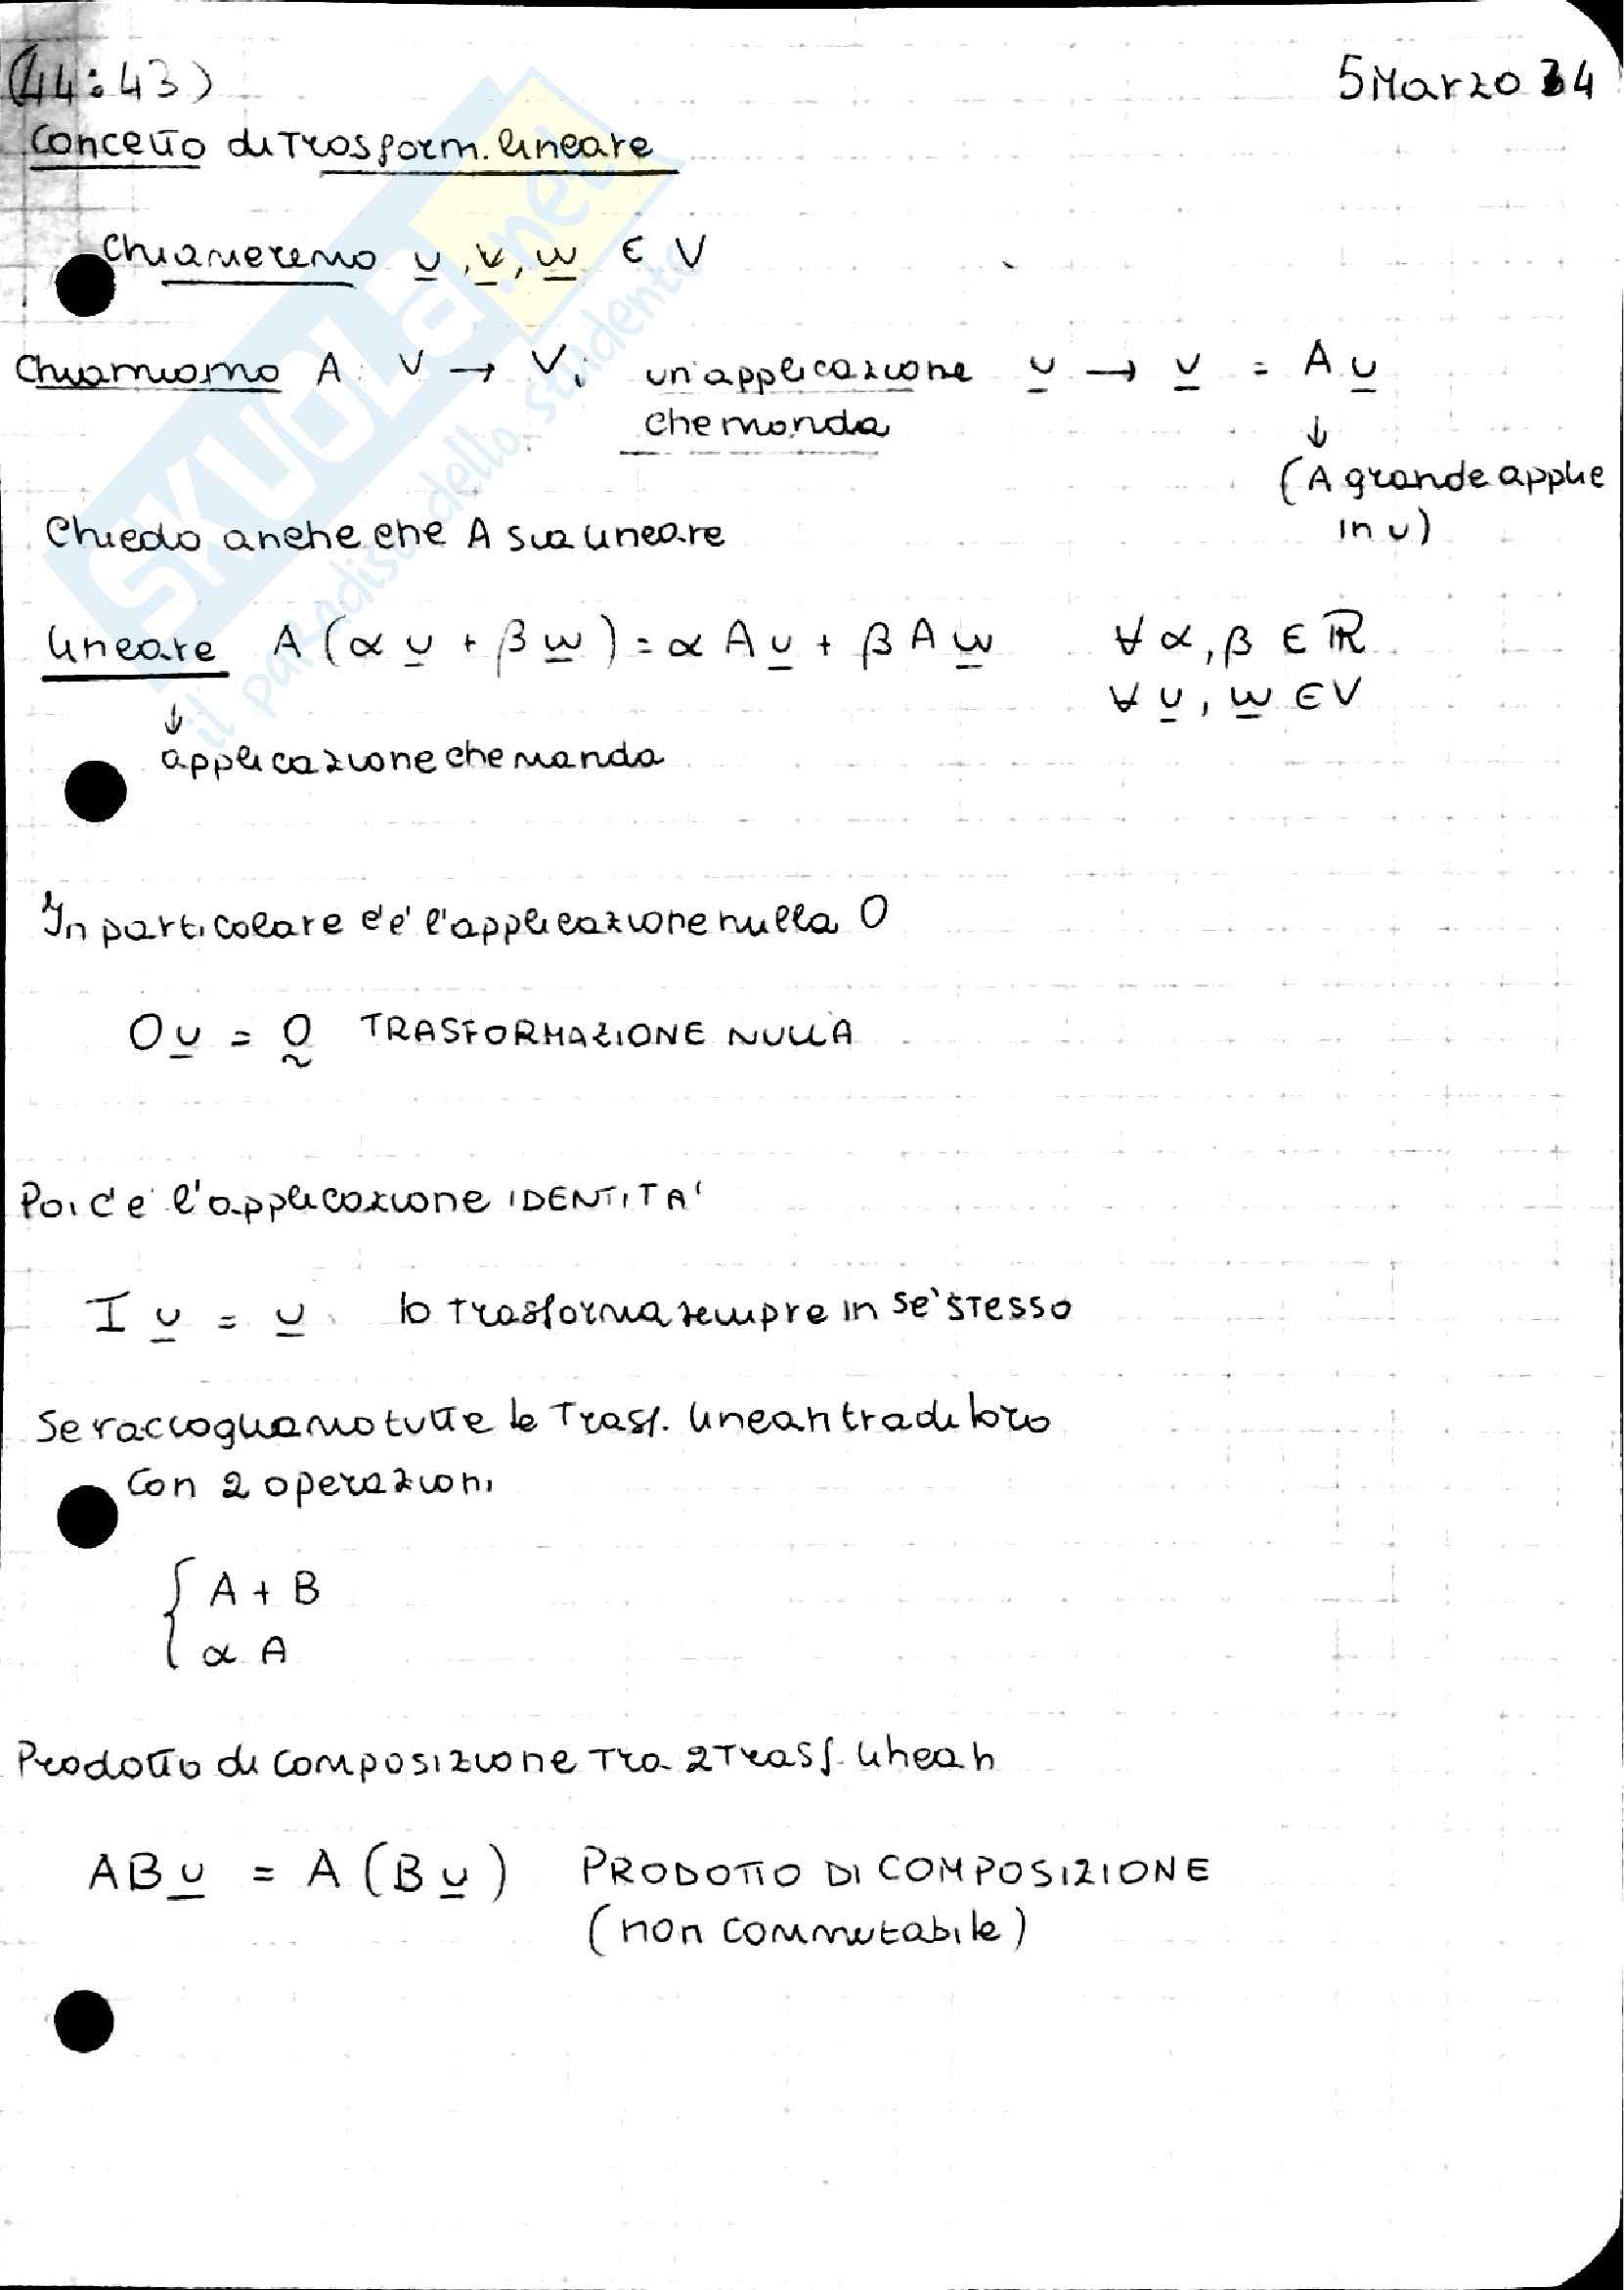 (44:43) 5 Marzo 34
Concetto di Trasform. lineare
Chiameremo u, v, w ∈ V
Chiamiamo A: V → V; un'applicazione u → v = A u
che manda ↓
(A grande applic
in u)
Chiedo anche che A sia lineare
lineare A (α u + β w) = α A u + β A w ∀ α, β ∈ ℝ
↓ ∀ u, w ∈ V
applicazione che manda
In particolare c'è l'applicazione nulla O
O u = 0 TRASFORMAZIONE NULLA
Poi c'è l'applicazione IDENTITA'
I u = u lo trasforma sempre in se' stesso
Se raccogliamo tutte le Trasf. lineari tra di loro
con 2 operazioni
{ A + B
α A
Prodotto di composizione Tra 2 Trasf. lineari
A B u = A (B u) PRODOTTO DI COMPOSIZIONE
(non commutabile)
SKUOLA.net
il paradiso dello studente